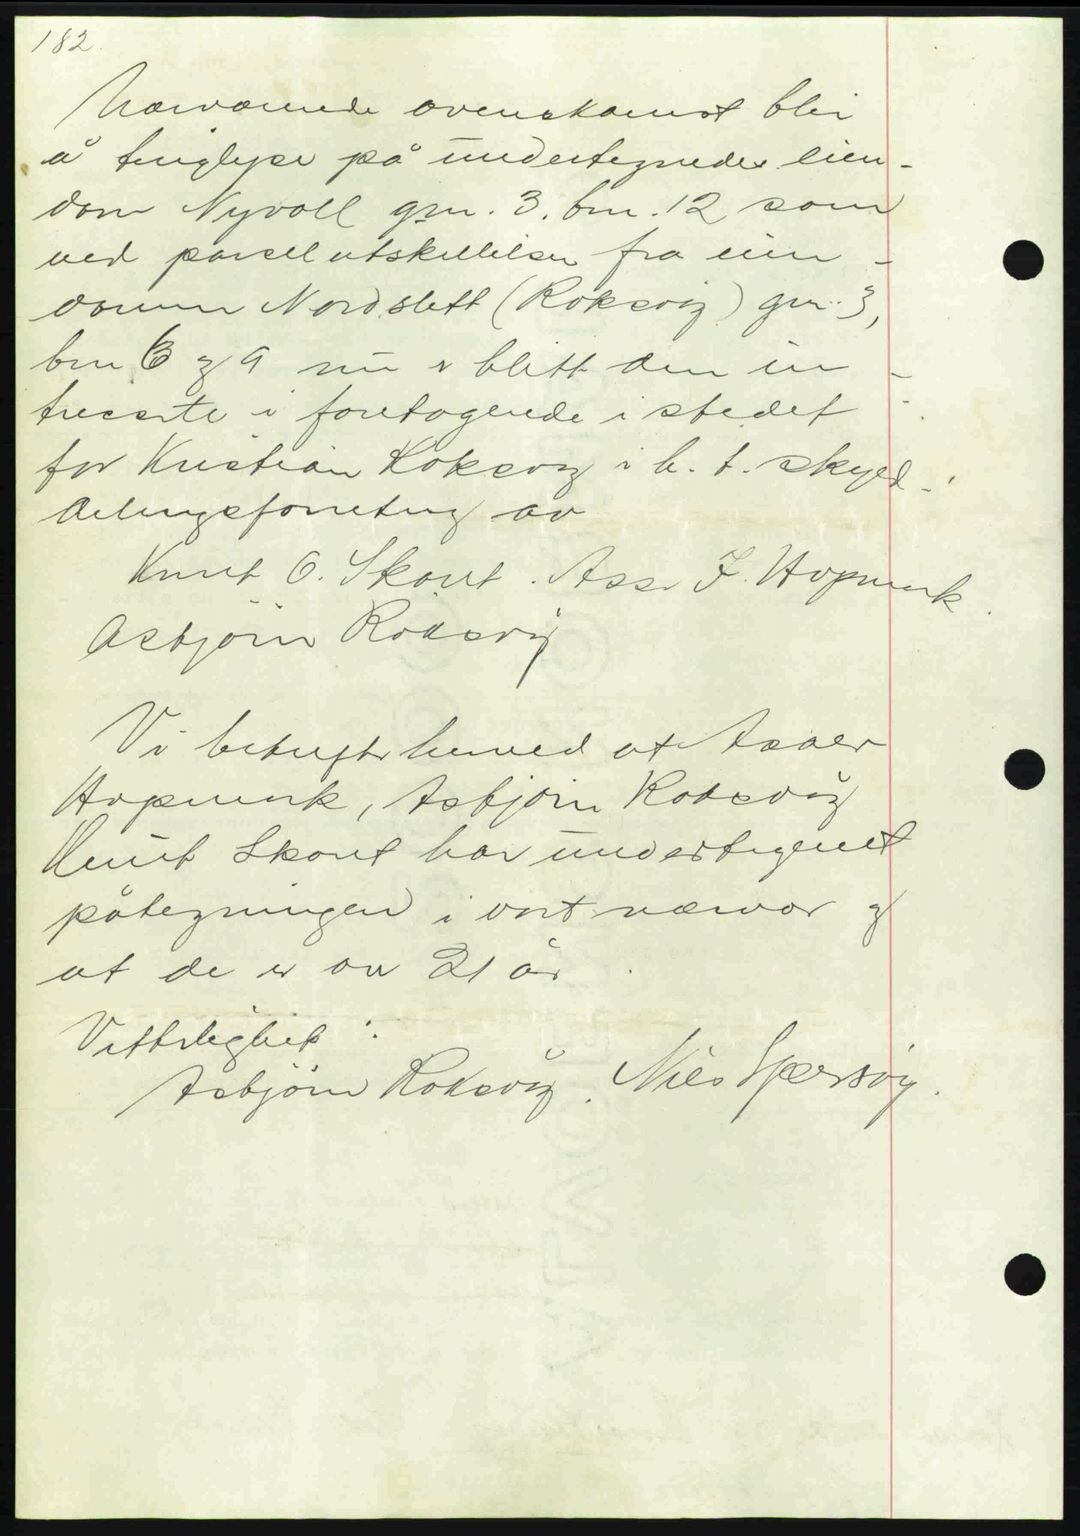 182.
Nærværende overenskomst blir
å tinglyse på undertegnedes eien-
dom Nyvoll gnr. 3, bnr. 12 som
ved parcellutskillelse fra eien-
domen Nordslett (Roksvåg) gnr. 3,
bnr 6 og 9 nu er blitt den in-
tresserte i foretagende i stedet
for Kristian Roksvåg i h. t. skyld-
delingsforretning av
Knut O. Skaret. Asser J. Hopmark.
Asbjörn Roksvåg
Vi bekrefter herved at Asser
Hopmark, Asbjörn Roksvåg
Knut Skaret har undertegnet
påtegningen i vort nærvær og
at de er over 21 år.
Vitterlighet:
Asbjörn Roksvåg. Nils Spersøy.